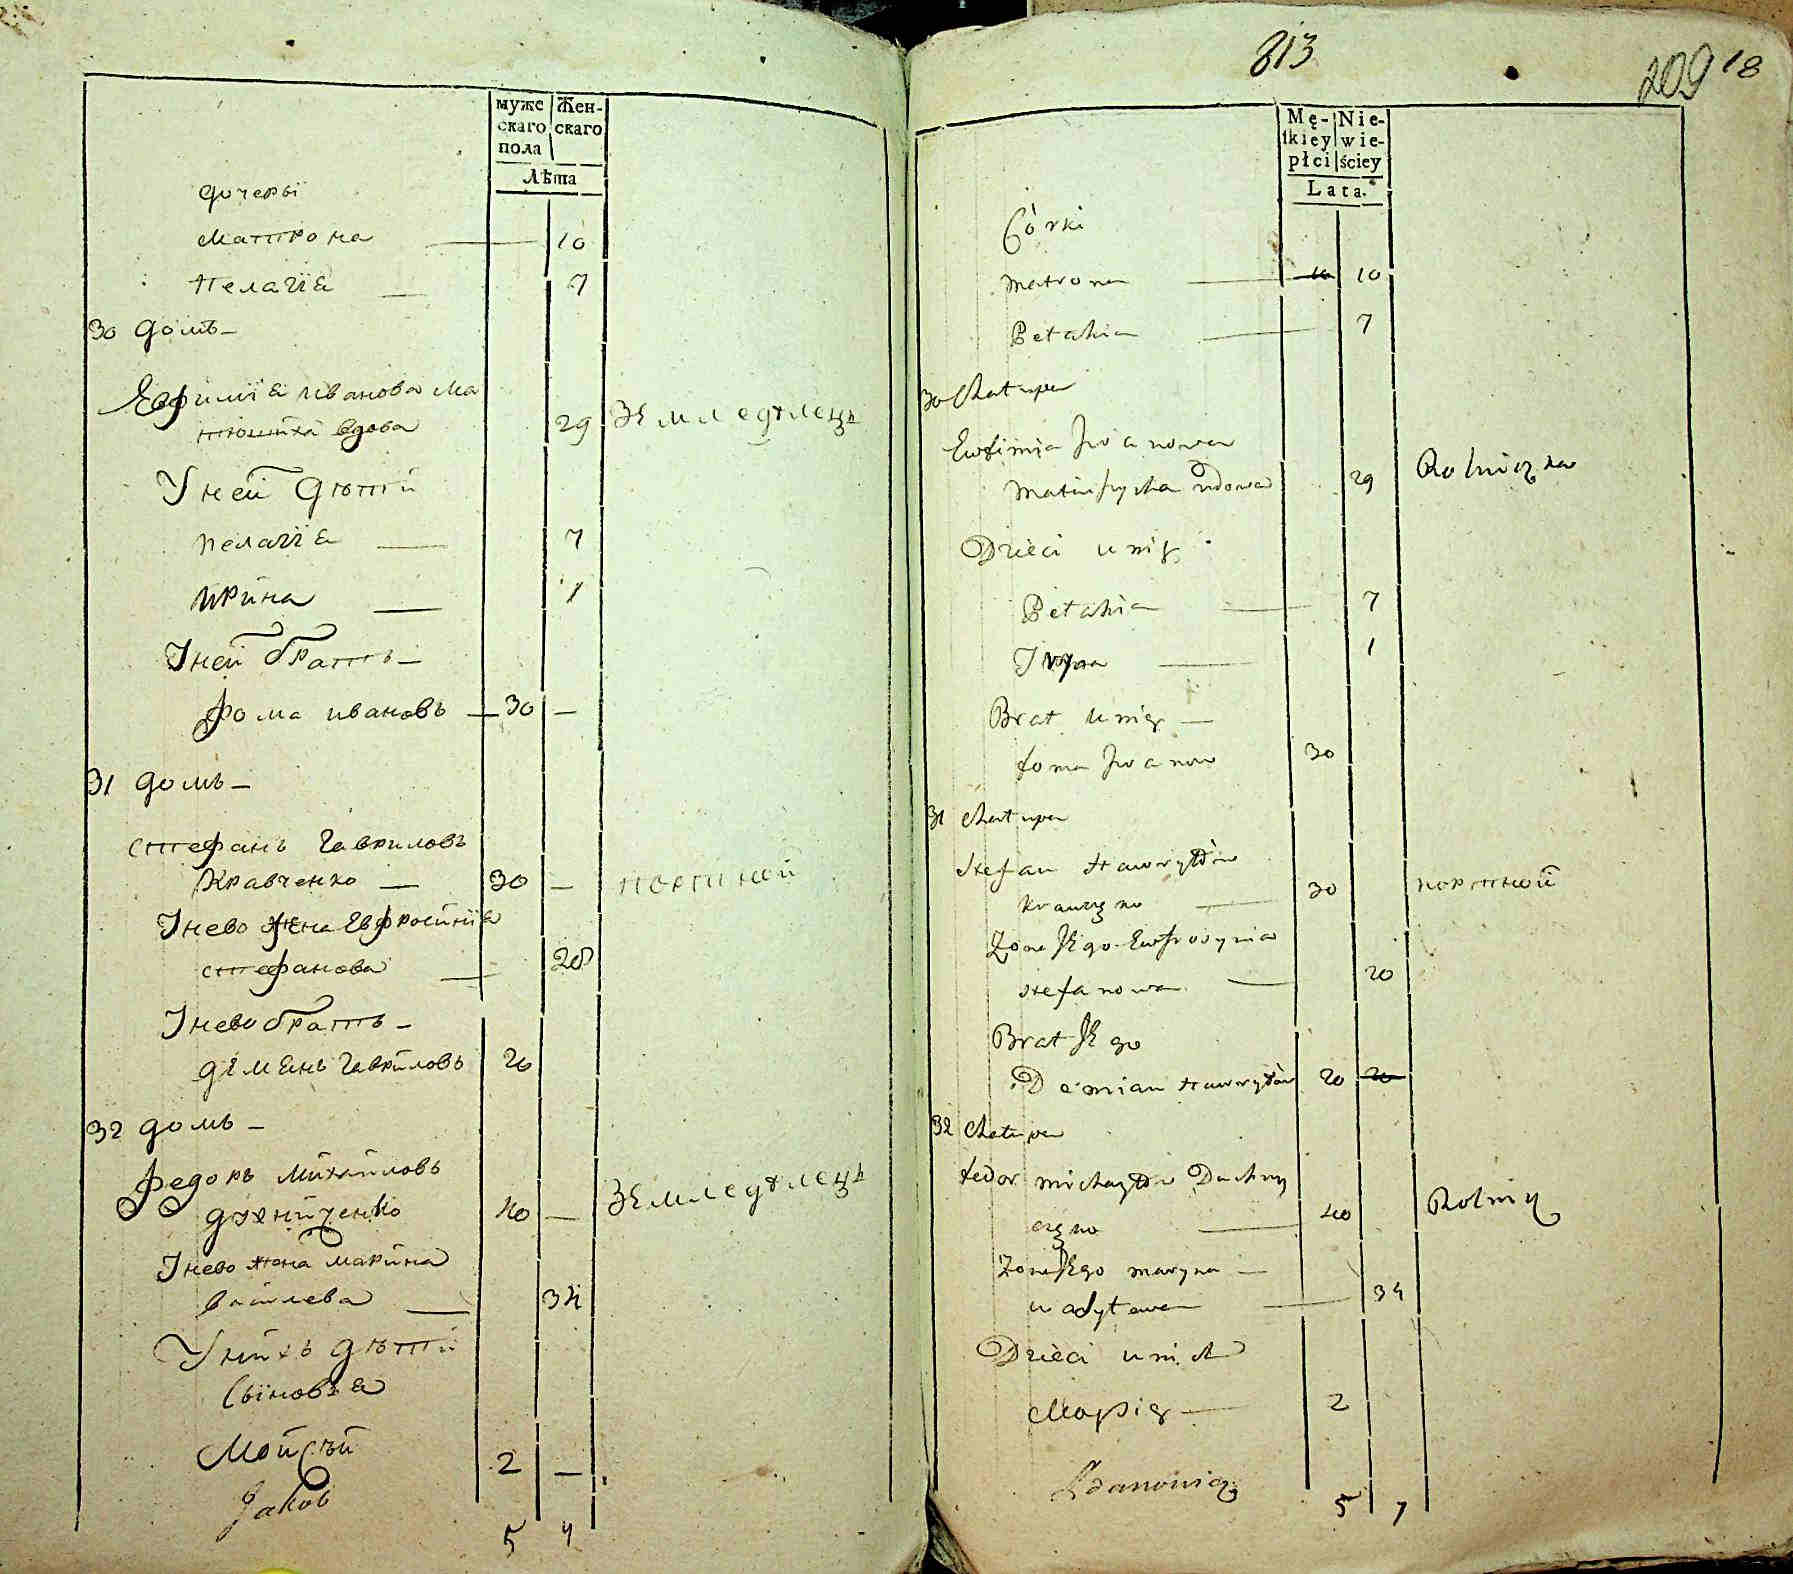 муже Жен-
скаго скаго
пола
Лѣта
дочеры
Матрона — 10
Пелагїя — 7
30 домъ —
Евфимїя иванова Ма
тюшиха вдова 29 Землѣделецъ
У ней дѣти
пелагїя — 7
ирина — 1
У ней братъ —
фома ивановъ — 30 —
31 домъ —
стефанъ Гавриловъ
Кравченко — 30 — портной
Унево жена Евфросинїя
стефанова — 28
Унево братъ —
дѣмянъ Гавриловъ 20
32 домъ —
федоръ михайловъ
духниченко 40 — Землѣделецъ
Унево жена марина
— 34
У нихъ дѣти
Сыновья
Мойсѣй 2 —
Jakob
5 7
813
209 18
Mę- Nie-
skiey wie-
płci ściey
Lata.
Córki
matrona — 10 10
Pelahia — 7
30 Chałupa
Ewfimia Iwanowa
Matiuszycha wdowa 29 Rolniczka
Dzieci u niey
Pelahia — 7
Iryna — 1
Brat u niey —
foma Iwanow 30
31 Chałupa
Stefan Hawryłów
Krawczenko — 30 портной
Żona Jego Ewfrosynia
Stefanowa — 20
Brat Jego
Demian Hawryłów 20 20
32 Chałupa
fedor michayłów Duchny
czenko — 40 Rolnik
Żona Jego maryna —
— 34
Dzieci u nich
— 2
5 7